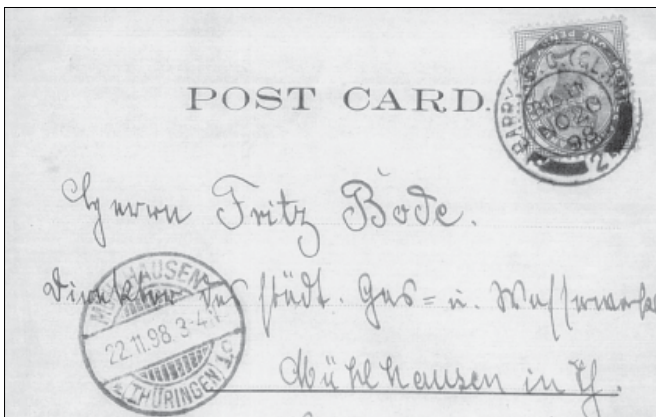 POST CARD.
Herrn Fritz Bode.
Direktor des städt. Gas= u. Wasserwerks
Mühlhausen in Th.
MÜHLHAUSEN
22.11.98.3-4N
(THÜRINGEN) 1.c
BARRY
98
2